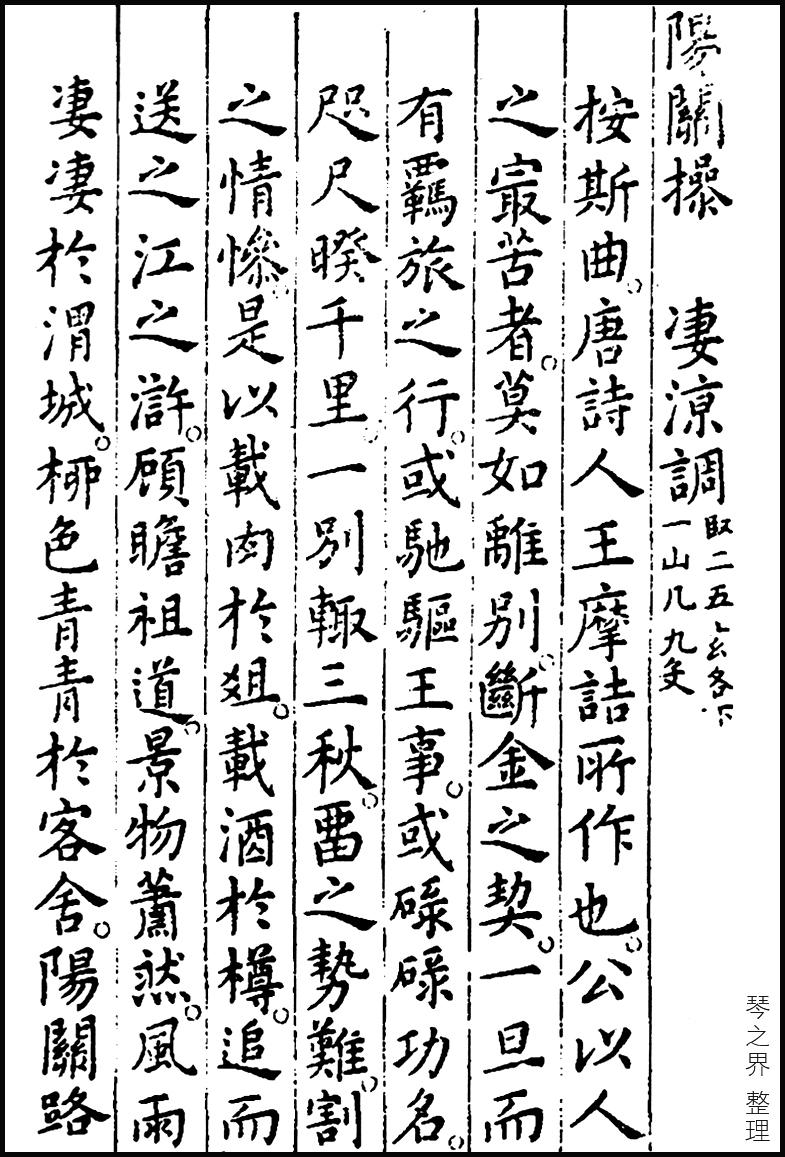 陽關操　凄涼調
臤二五玄各下
一山几九
按斯曲。唐詩人王摩詰所作也。公以人
之最苦者。莫如離別。斷金之契。一旦而
有羈旅之行。或馳驅王事。或碌碌功名。
咫尺暌千里。一別輙三秋。畱之勢難。割
之情慘。是以載肉於俎。載酒於樽。追而
送之江之滸。頋瞻祖道。景物蕭然。風雨
凄凄於渭城。桺色青青於客舍。陽關路
琴之界 整理